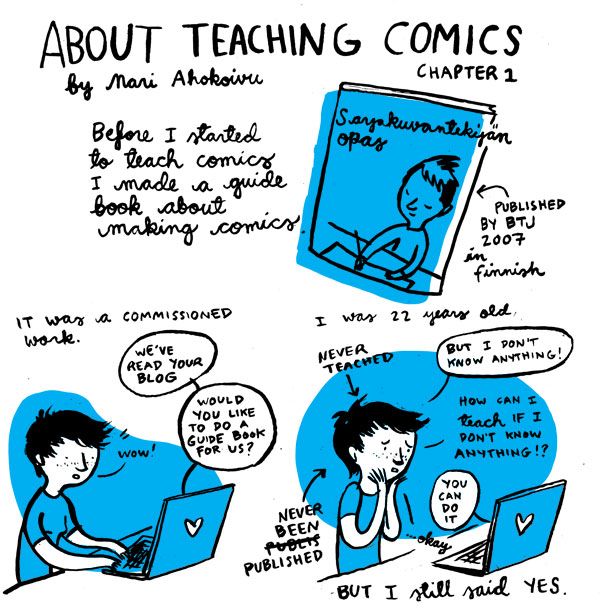 ABOUT TEACHING COMICS
by Mari Ahokoivu
CHAPTER 1
Before I started
to teach comics
I made a guide
book about
making comics
Sarjakuvantekijän
opas
PUBLISHED
BY BTJ
2007
in
finnish
IT was a COMMISSIONED
work.
WE'VE
READ YOUR
BLOG
WOULD
YOU LIKE
TO DO A
GUIDE BOOK
FOR US?
wow!
I was 22 years old.
NEVER
TEACHED
BUT I DON'T
KNOW ANYTHING!
HOW CAN I
teach IF I
DON'T KNOW
ANYTHING!?
YOU
CAN
DO
IT
...okay
NEVER
BEEN
PUBLIS
PUBLISHED
BUT I still said YES.